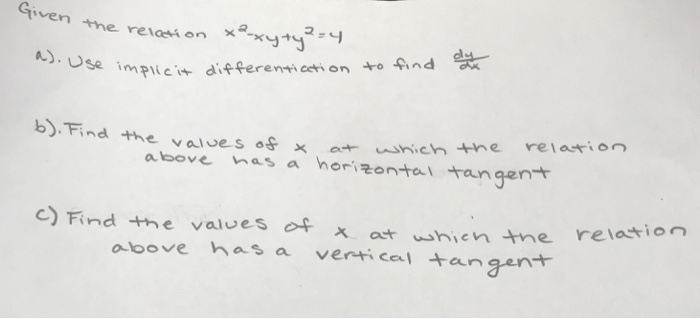 Given the relation x²-xy+y²=4
a). Use implicit differentiation to find dy/dx
b). Find the values of x at which the relation
above has a horizontal tangent
c) Find the values of x at which the relation
above has a vertical tangent